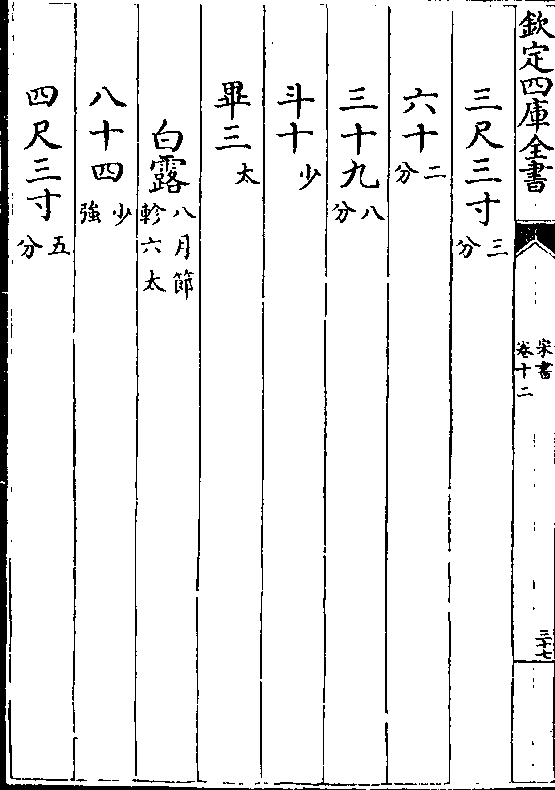 欽定四庫全書
宋書
卷十二
三十七
三尺三寸三分
六十二分
三十九八分
斗十少
畢三太
白露八月節軫六太
八十四少強
四尺三寸五分